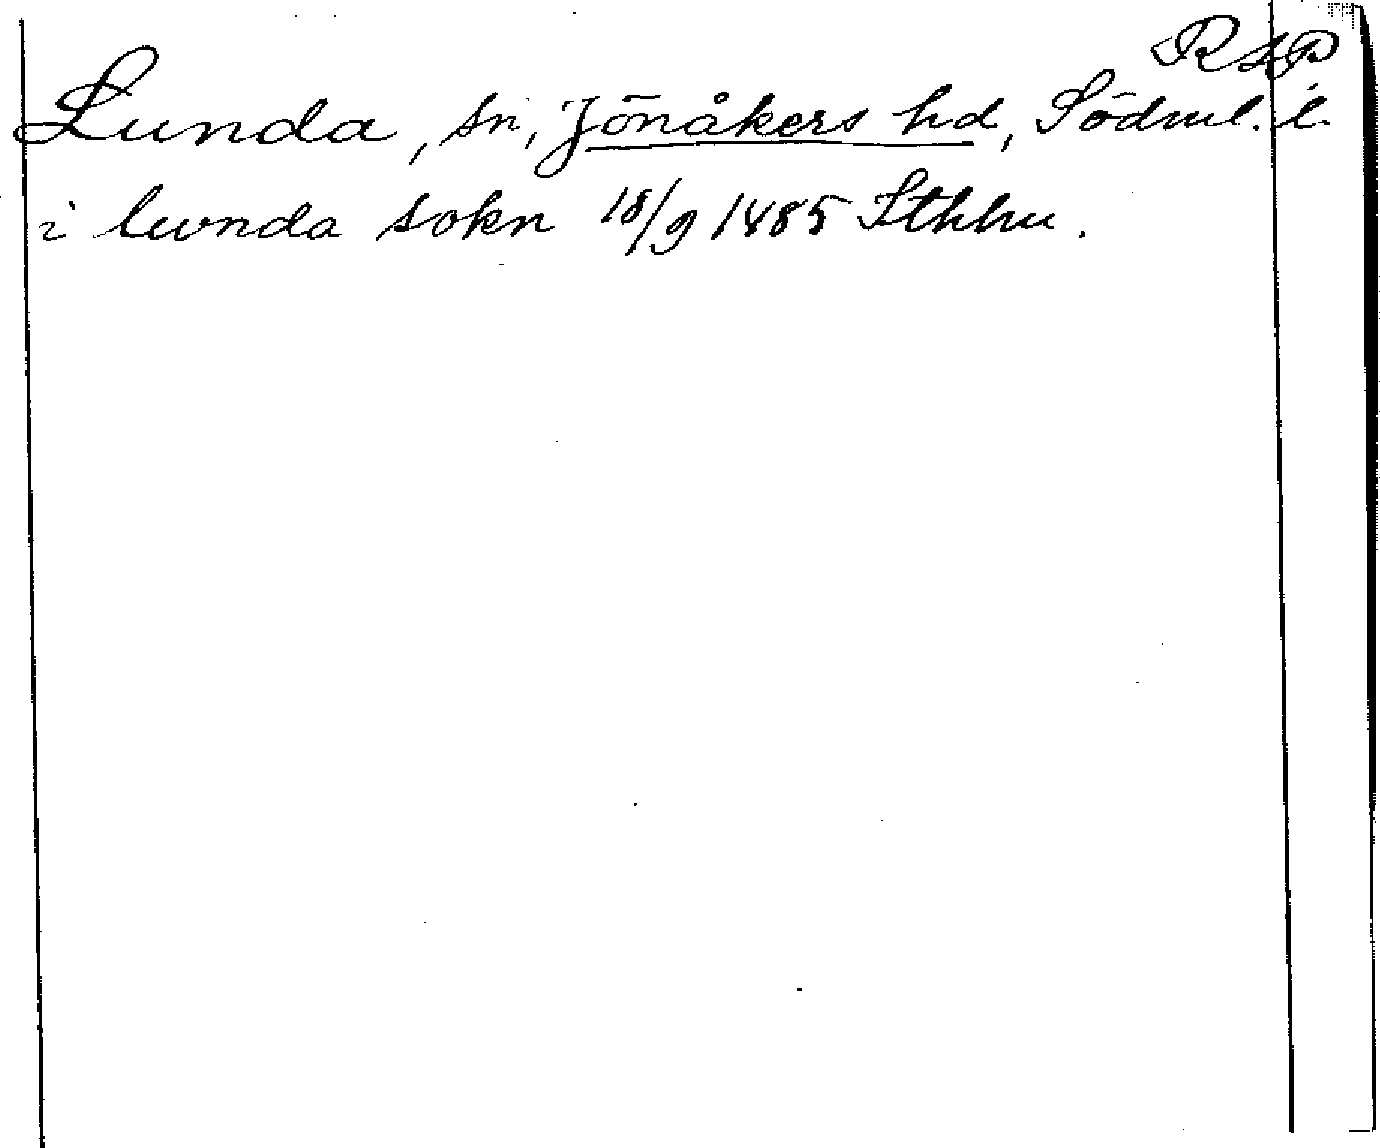 RAP
Lunda, sn, Jönåkers hd, Södml. l.
i lwnda sokn 18/9 1485 Sthhu.